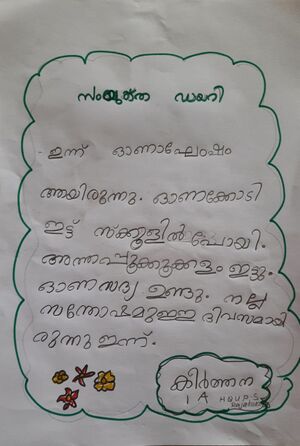 സംയുക്ത ഡയറി
ഇന്ന് ഓണാഘോഷം
ആയിരുന്നു. ഓണക്കോടി
ഇട്ട് സ്ക്കൂളിൽ പോയി.
അത്തപ്പൂക്കുക്കളം ഇട്ടു.
ഓണസദ്യ ഉണ്ടു. നല്ല
സന്തോഷമുള്ള ദിവസമായി
രുന്നു ഇന്ന്.
കീർത്തന
1 A HQUPS